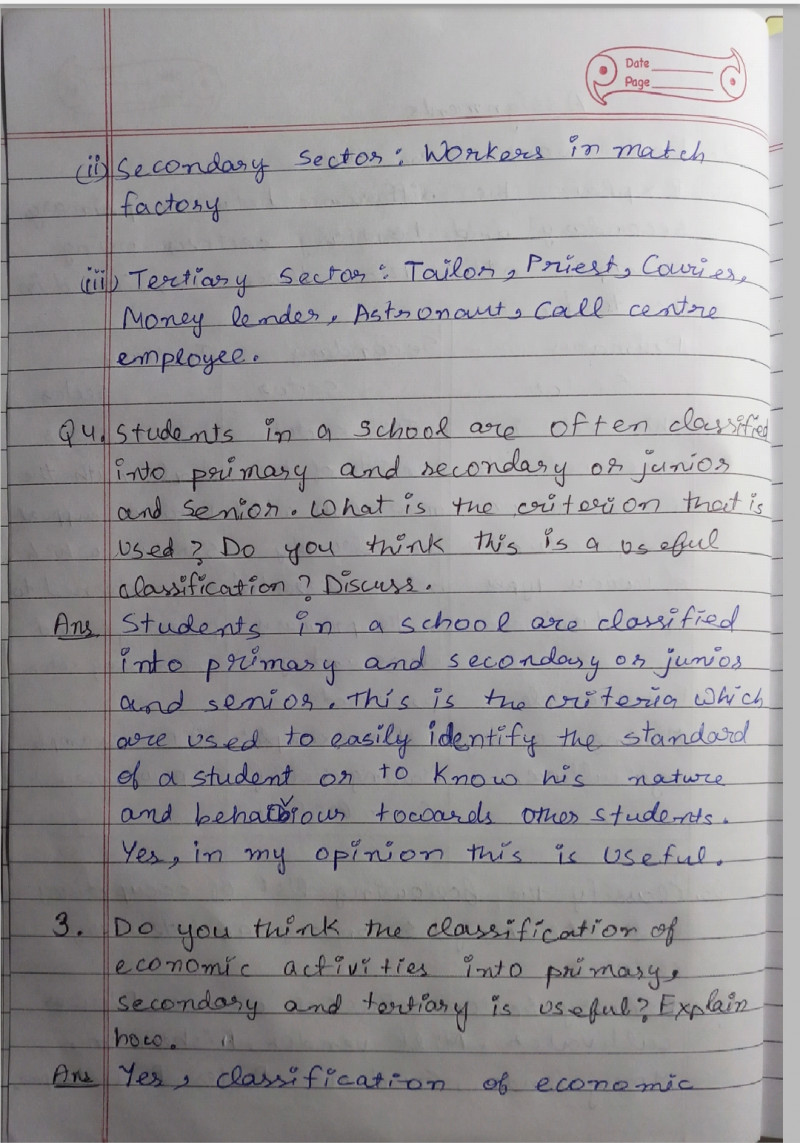 Date
Page
(ii) Secondary Sector : Workers in match
factory
(iii) Tertiary Sector : Tailor, Priest, Courier,
Money lender, Astronaut, Call centre
employee.
Q4. Students in a school are often classified
into primary and secondary or junior
and Senior. What is the criterion that is
used? Do you think this is a useful
classification? Discuss.
Ans Students in a school are classified
into primary and secondary or junior
and senior. This is the criteria which
are used to easily identify the standard
of a student or to know his nature
and behaviour towards other students.
Yes, in my opinion this is useful.
3. Do you think the classification of
economic activities into primary,
secondary and tertiary is useful? Explain
how.
Ans Yes, classification of economic